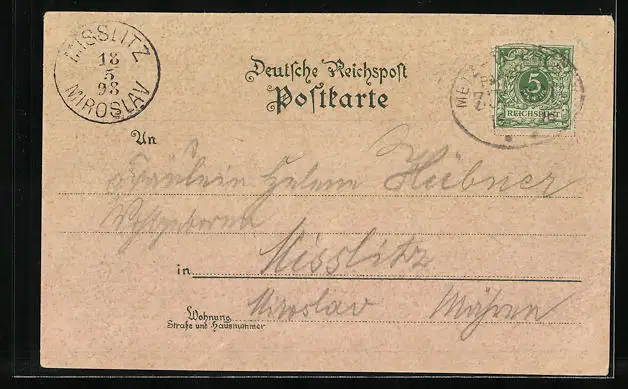 MISSLITZ
18
5
98
MIROSLAV
Deutsche Reichspost
Postkarte
5
REICHSPOST
An
Fräulein Helene Hübner
Wohlgeboren
in Misslitz
Miroslav Mähren
Wohnung
Straße und Hausnummer